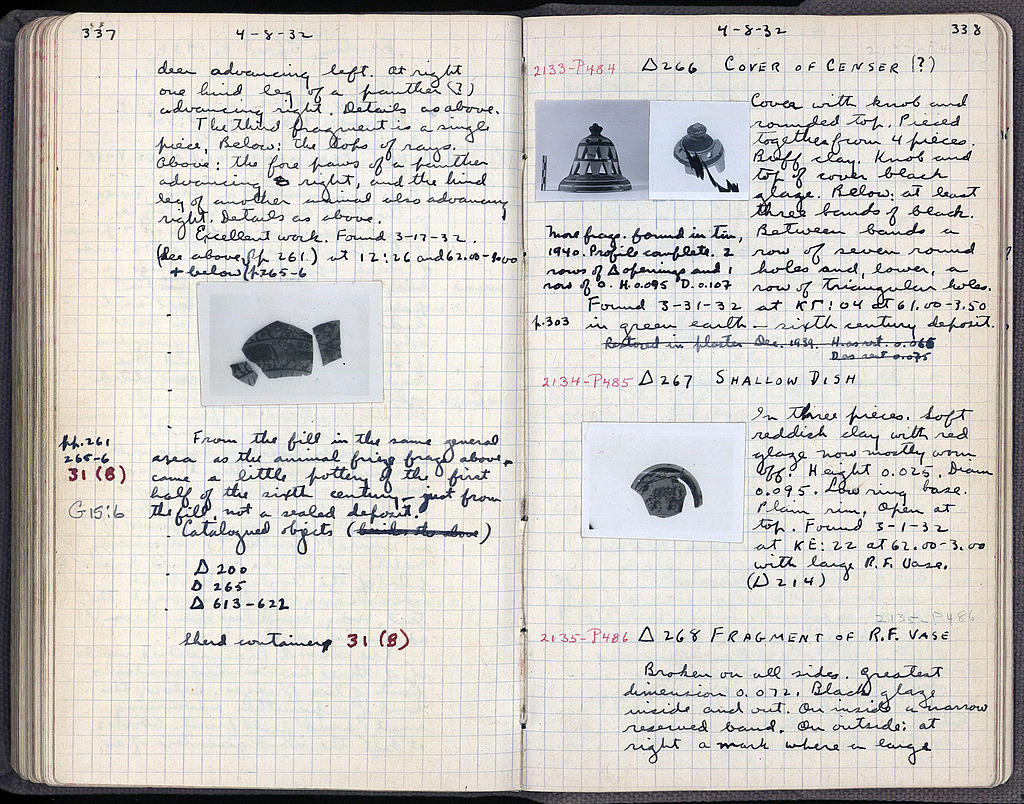 337
4-8-32
deer advancing left. At right
one hind leg of a panther (?)
advancing right. Details as above.
The third fragment is a single
piece. Below: the tops of rays.
Above: the fore paws of a panther
advancing right, and the hind
leg of another animal also advancing
right. Details as above.
Excellent work. Found 3-17-32.
(See above, p. 261.) at 12:26 and 62.00-
+ below p. 265-6
pp. 261
265-6
31 (B)
G 15:6
From the fill in the same general
area as the animal frieze frags above,
came a little pottery of the first
half of the sixth century - just from
the fill, not a sealed deposit.
Catalogued objects (besides the above)
Δ 200
Δ 265
Δ 613-622
Sherd container 31 (B)
4-8-32
338
2133-P484 Δ266 COVER OF CENSER (?)
Cover with knob and
rounded top. Pieced
together from 4 pieces.
Buff clay. Knob and
top of cover black
glaze. Below: at least
three bands of black.
Between bands a
row of seven round
holes and, lower, a
row of triangular holes.
More frags. found in tin,
1940. Profile complete. 2
rows of Δ openings and 1
row of O. H. 0.095 D. 0.107
Found 3-31-32 at KΓ:04 at 61.00-3.50
p.303 in green earth - sixth century deposit.
Restored in plaster Dec. 1939. H. as rest. 0.066
D as rest 0.075
2134-P485 Δ267 SHALLOW DISH
In three pieces. Soft
reddish clay with red
glaze now mostly worn
off. Height 0.025. Diam
0.095. Low ring base.
Plain rim, Open at
top. Found 3-1-32
at KE:22 at 62.00-3.00
with large R.F. Vase.
(Δ214)
2135-P486
2135-P486 Δ268 FRAGMENT OF R.F. VASE
Broken on all sides. Greatest
dimension 0.072. Black glaze
inside and out. On inside a narrow
reserved band. On outside: at
right a mark where a large